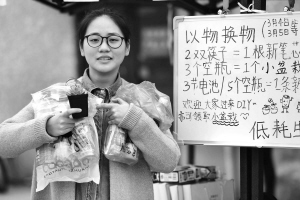 以物换物 (3月4日
3月5日等
2双筷子=1根新笔芯
3个空瓶=1个小盆栽
3节电池/5个空瓶=1条新
欢迎大家过来DIY~
低耗